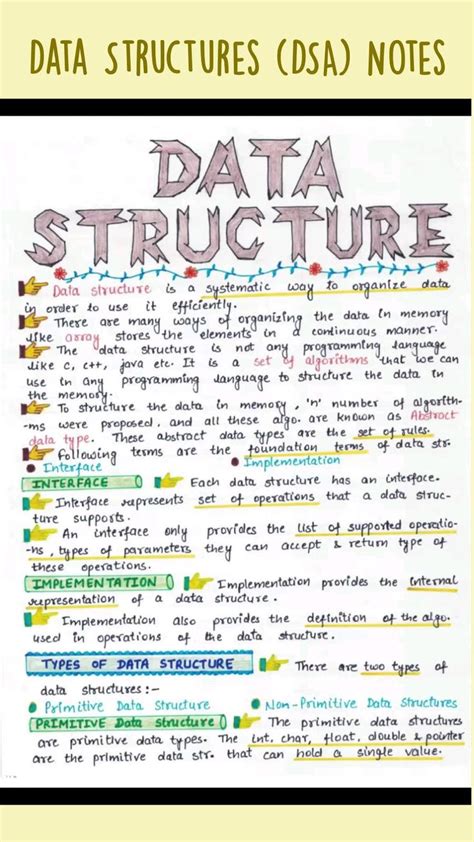 DATA STRUCTURES (DSA) NOTES
DATA
STRUCTURE
Data structure is a systematic way to organize data
in order to use it efficiently.
There are many ways of organizing the data in memory
like array stores the elements in a continuous manner.
The data structure is not any programming language
like C, C++, java etc. It is a set of algorithms that we can
use in any programming language to structure the data in
the memory.
To structure the data in memory, 'n' number of algorith-
-ms were proposed, and all these algo. are known as Abstract
data type. These abstract data types are the set of rules.
Following terms are the foundation terms of data str.
Interface Implementation
INTERFACE Each data structure has an interface.
Interface represents set of operations that a data struc-
ture supports.
An interface only provides the list of supported operatio-
-ns, types of parameters they can accept & return type of
these operations.
IMPLEMENTATION Implementation provides the internal
representation of a data structure.
Implementation also provides the definition of the algo.
used in operations of the data structure.
TYPES OF DATA STRUCTURE There are two types of
data structures :-
Primitive Data Structure Non-Primitive Data Structures
PRIMITIVE Data structure The primitive data structures
are primitive data types. The int, char, float, double & pointer
are the primitive data str. that can hold a single value.